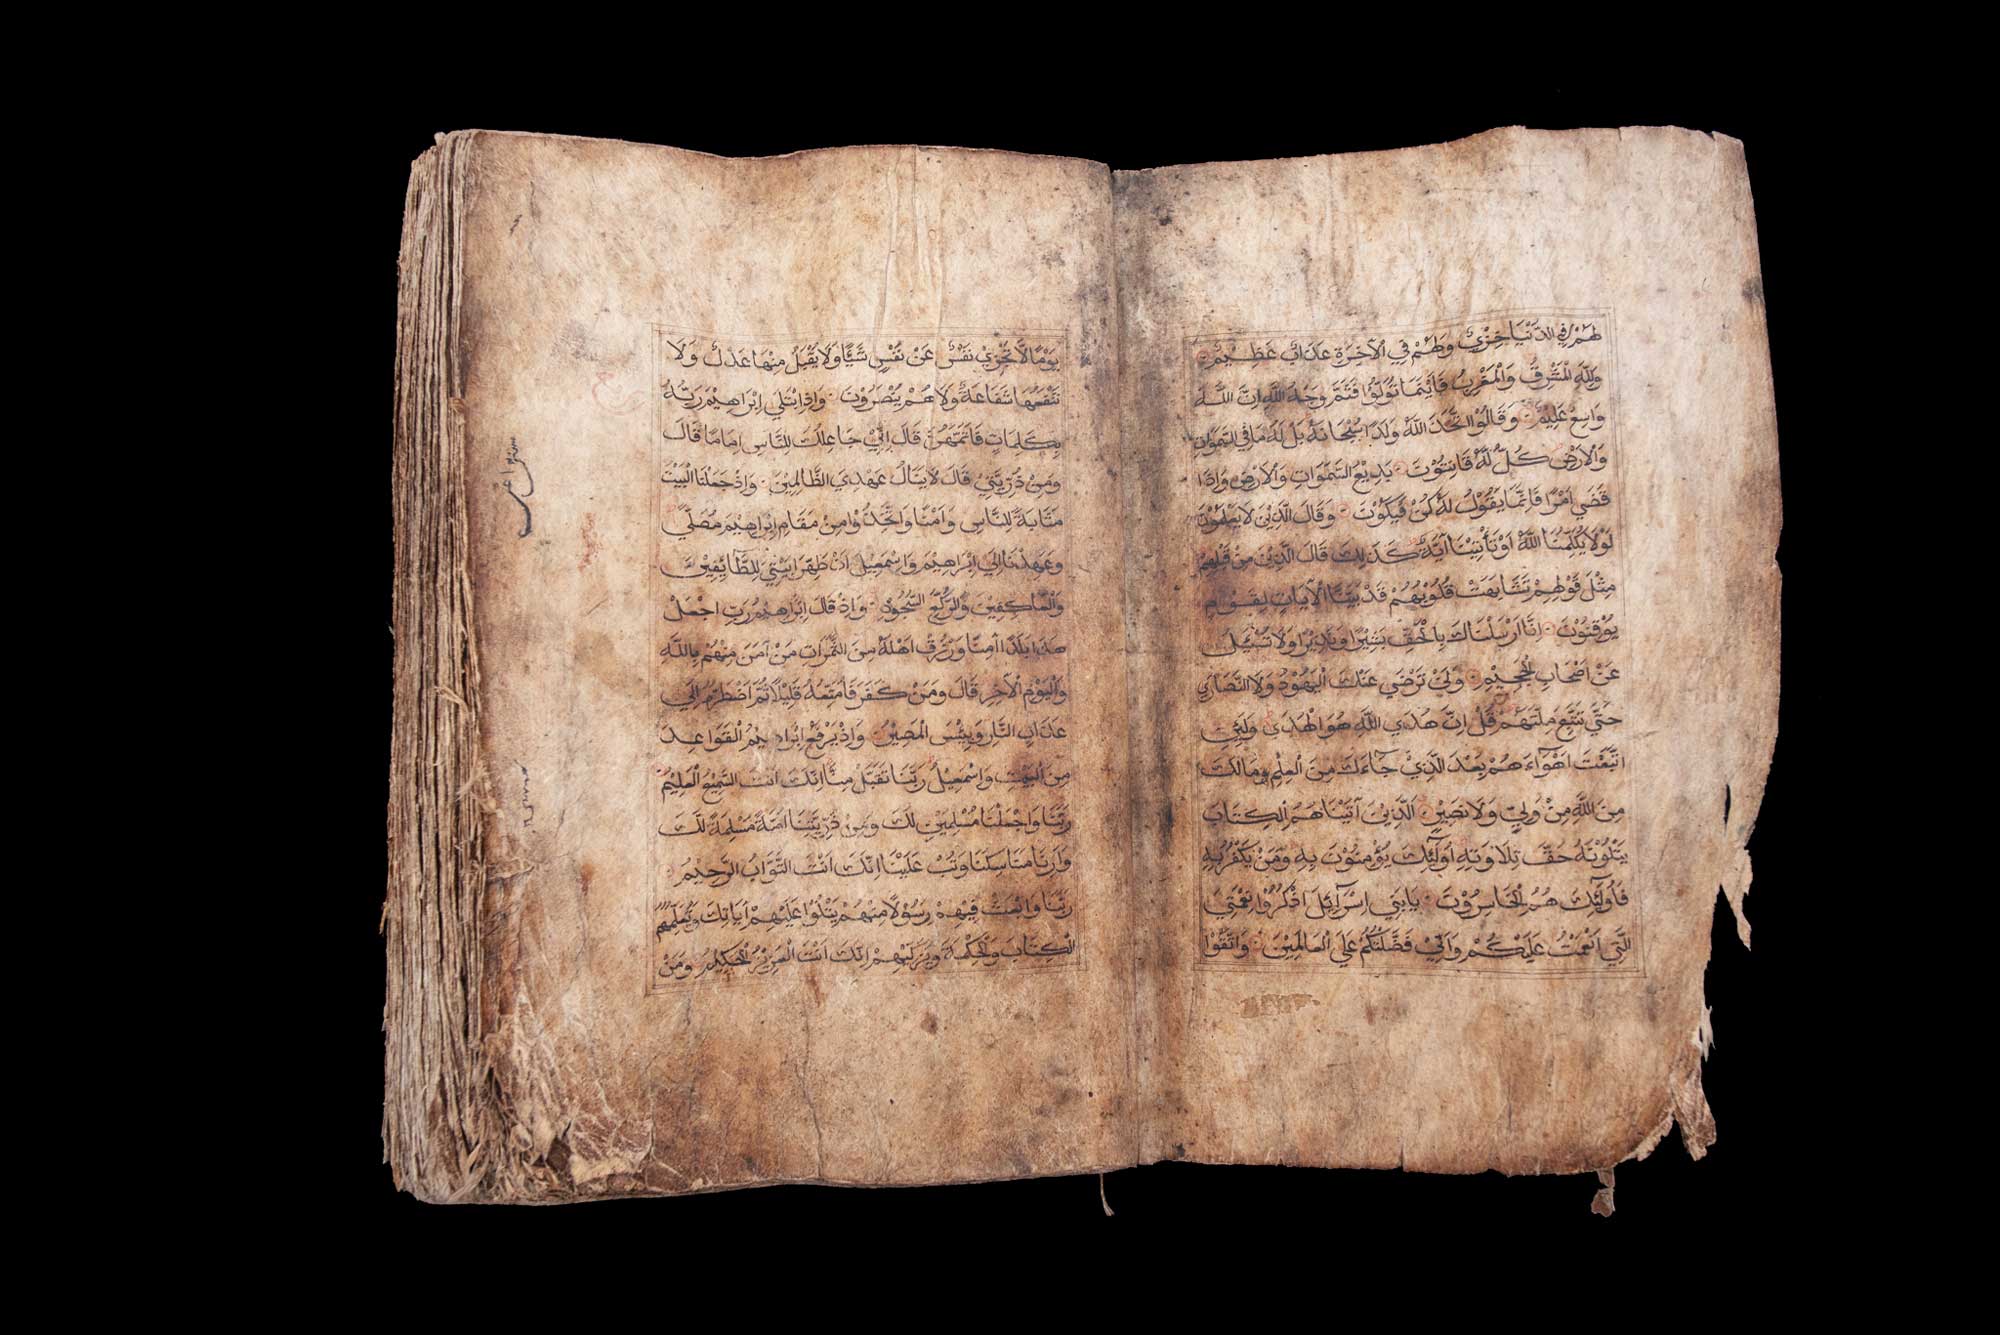 لَهُمْ فِي الدُّنْيَا خِزْيٌ وَلَهُمْ فِي الْآخِرَةِ عَذَابٌ عَظِيمٌ
وَلِلَّهِ الْمَشْرِقُ وَالْمَغْرِبُ فَأَيْنَمَا تُوَلُّوا فَثَمَّ وَجْهُ اللَّهِ إِنَّ اللَّهَ
وَاسِعٌ عَلِيمٌ وَقَالُوا اتَّخَذَ اللَّهُ وَلَدًا سُبْحَانَهُ بَلْ لَهُ مَا فِي السَّمَوَاتِ
وَالْأَرْضِ كُلٌّ لَهُ قَانِتُونَ بَدِيعُ السَّمَوَاتِ وَالْأَرْضِ وَإِذَا
قَضَى أَمْرًا فَإِنَّمَا يَقُولُ لَهُ كُنْ فَيَكُونُ وَقَالَ الَّذِينَ لَا يَعْلَمُونَ
لَوْلَا يُكَلِّمُنَا اللَّهُ أَوْ تَأْتِينَا آيَةٌ كَذَلِكَ قَالَ الَّذِينَ مِنْ قَبْلِهِمْ
مِثْلَ قَوْلِهِمْ تَشَابَهَتْ قُلُوبُهُمْ قَدْ بَيَّنَّا الْآيَاتِ لِقَوْمٍ
يُوقِنُونَ إِنَّا أَرْسَلْنَاكَ بِالْحَقِّ بَشِيرًا وَنَذِيرًا وَلَا تُسْئَلُ
عَنْ أَصْحَابِ الْجَحِيمِ وَلَنْ تَرْضَى عَنْكَ الْيَهُودُ وَلَا النَّصَارَى
حَتَّى تَتَّبِعَ مِلَّتَهُمْ قُلْ إِنَّ هُدَى اللَّهِ هُوَ الْهُدَى وَلَئِنِ
اتَّبَعْتَ أَهْوَاءَهُمْ بَعْدَ الَّذِي جَاءَكَ مِنَ الْعِلْمِ مَا لَكَ
مِنَ اللَّهِ مِنْ وَلِيٍّ وَلَا نَصِيرٍ الَّذِينَ آتَيْنَاهُمُ الْكِتَابَ
يَتْلُونَهُ حَقَّ تِلَاوَتِهِ أُولَئِكَ يُؤْمِنُونَ بِهِ وَمَنْ يَكْفُرْ بِهِ
فَأُولَئِكَ هُمُ الْخَاسِرُونَ يَا بَنِي إِسْرَائِيلَ اذْكُرُوا نِعْمَتِيَ
الَّتِي أَنْعَمْتُ عَلَيْكُمْ وَأَنِّي فَضَّلْتُكُمْ عَلَى الْعَالَمِينَ وَاتَّقُوا
يَوْمًا لَا تَجْزِي نَفْسٌ عَنْ نَفْسٍ شَيْئًا وَلَا يُقْبَلُ مِنْهَا عَدْلٌ وَلَا
تَنْفَعُهَا شَفَاعَةٌ وَلَا هُمْ يُنْصَرُونَ وَإِذِ ابْتَلَى إِبْرَاهِيمَ رَبُّهُ
بِكَلِمَاتٍ فَأَتَمَّهُنَّ قَالَ إِنِّي جَاعِلُكَ لِلنَّاسِ إِمَامًا قَالَ
وَمِنْ ذُرِّيَّتِي قَالَ لَا يَنَالُ عَهْدِي الظَّالِمِينَ وَإِذْ جَعَلْنَا الْبَيْتَ
مَثَابَةً لِلنَّاسِ وَأَمْنًا وَاتَّخِذُوا مِنْ مَقَامِ إِبْرَاهِيمَ مُصَلًّى
وَعَهِدْنَا إِلَى إِبْرَاهِيمَ وَإِسْمَعِيلَ أَنْ طَهِّرَا بَيْتِيَ لِلطَّائِفِينَ
وَالْعَاكِفِينَ وَالرُّكَّعِ السُّجُودِ وَإِذْ قَالَ إِبْرَاهِيمُ رَبِّ اجْعَلْ
هَذَا بَلَدًا آمِنًا وَارْزُقْ أَهْلَهُ مِنَ الثَّمَرَاتِ مَنْ آمَنَ مِنْهُمْ بِاللَّهِ
وَالْيَوْمِ الْآخِرِ قَالَ وَمَنْ كَفَرَ فَأُمَتِّعُهُ قَلِيلًا ثُمَّ أَضْطَرُّهُ إِلَى
عَذَابِ النَّارِ وَبِئْسَ الْمَصِيرُ وَإِذْ يَرْفَعُ إِبْرَاهِيمُ الْقَوَاعِدَ
مِنَ الْبَيْتِ وَإِسْمَعِيلُ رَبَّنَا تَقَبَّلْ مِنَّا إِنَّكَ أَنْتَ السَّمِيعُ الْعَلِيمُ
رَبَّنَا وَاجْعَلْنَا مُسْلِمَيْنِ لَكَ وَمِنْ ذُرِّيَّتِنَا أُمَّةً مُسْلِمَةً لَكَ
وَأَرِنَا مَنَاسِكَنَا وَتُبْ عَلَيْنَا إِنَّكَ أَنْتَ التَّوَّابُ الرَّحِيمُ
رَبَّنَا وَابْعَثْ فِيهِمْ رَسُولًا مِنْهُمْ يَتْلُوا عَلَيْهِمْ آيَاتِكَ وَيُعَلِّمُهُمُ
الْكِتَابَ وَالْحِكْمَةَ وَيُزَكِّيهِمْ إِنَّكَ أَنْتَ الْعَزِيزُ الْحَكِيمُ وَمَنْ